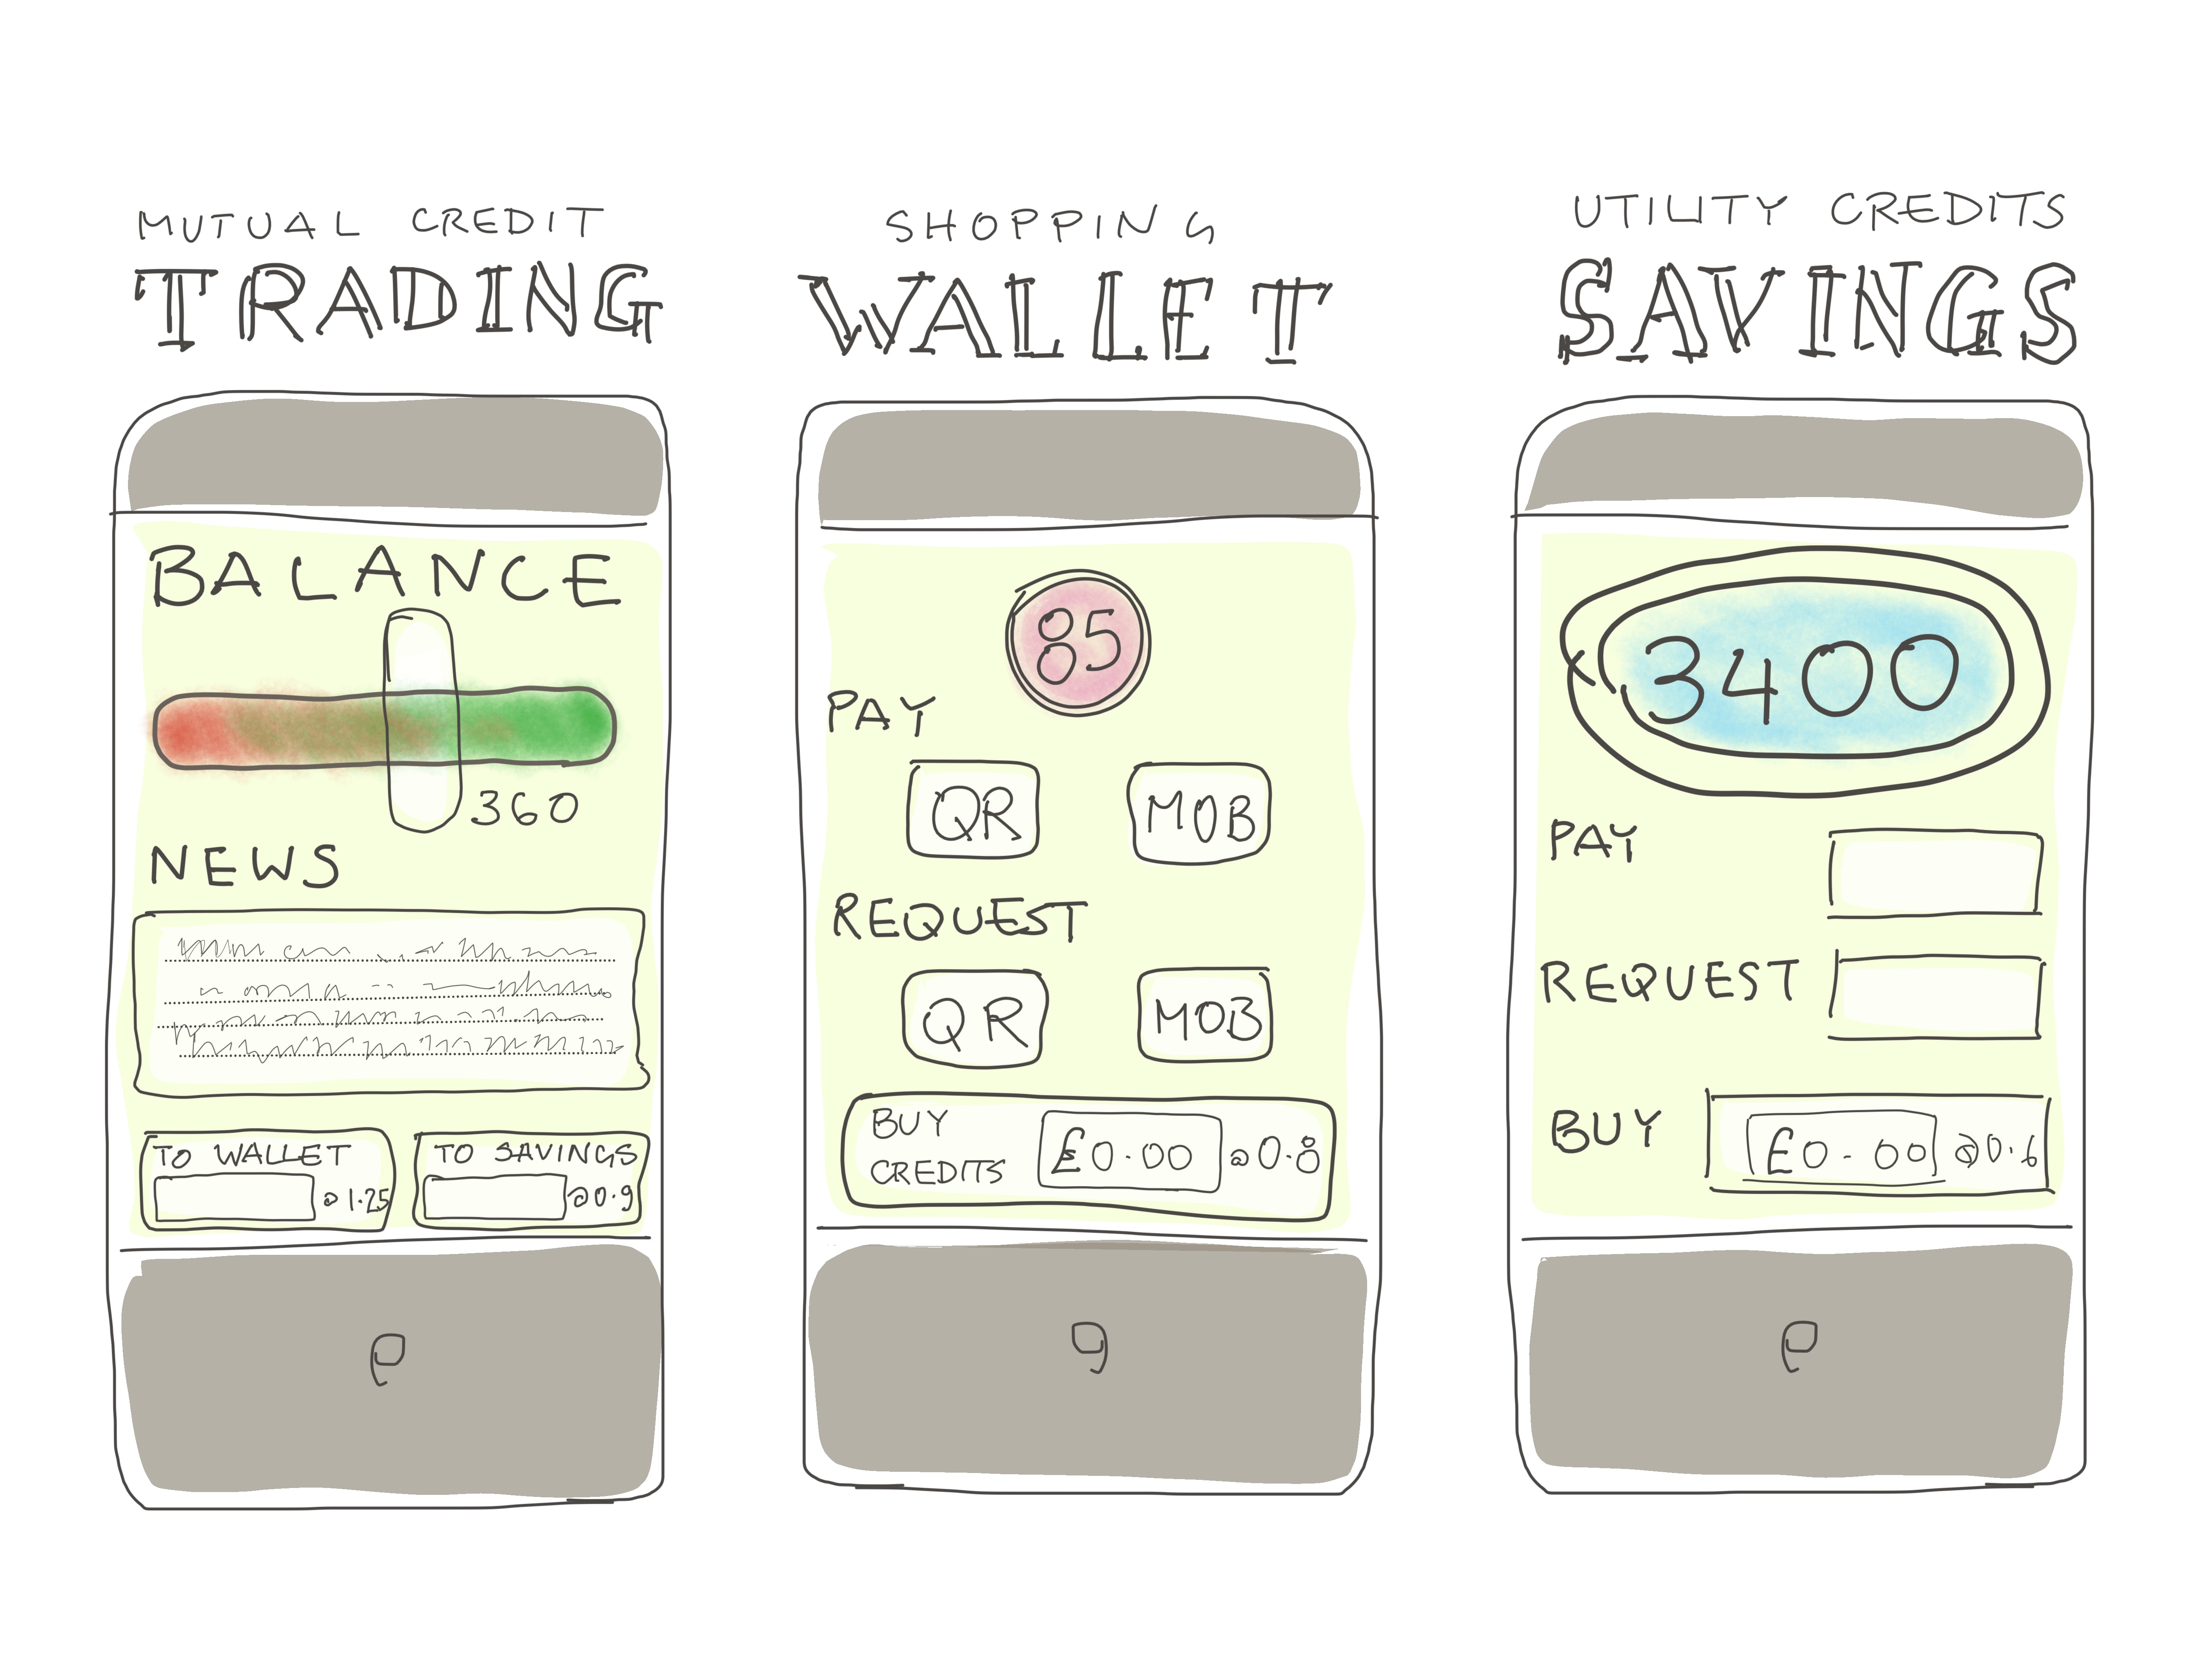 MUTUAL CREDIT
TRADING
BALANCE
360
NEWS
TO WALLET
@1.25
TO SAVINGS
@0.9
SHOPPING
WALLET
85
PAY
QR
MOB
REQUEST
QR
MOB
BUY
CREDITS
£0.00 @0.8
UTILITY CREDITS
SAVINGS
3400
PAY
REQUEST
BUY £0.00 @0.6